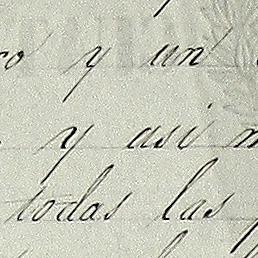 y un
y asi
todas las